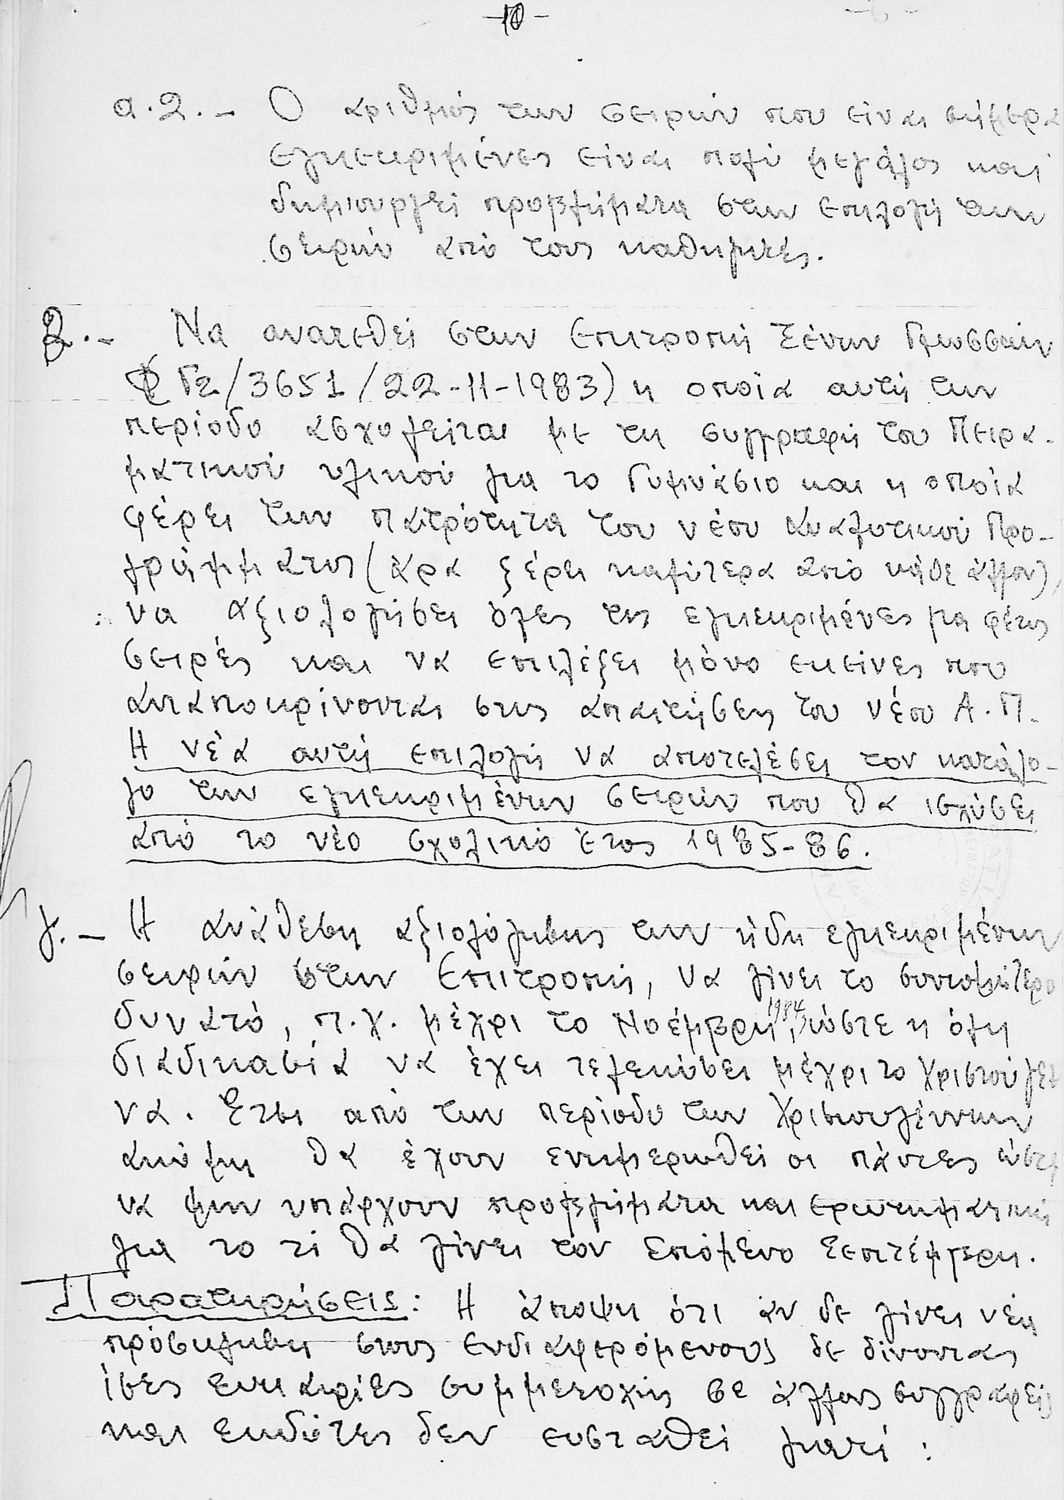 -10-
α.2.- Ο αριθμός των σειρών που είναι σήμερα
εγκεκριμένες είναι πολύ μεγάλος και
δημιουργεί προβλήματα στην επιλογή των
σειρών από τους καθηγητές.
β.- Να ανατεθεί στην Επιτροπή Ξένων Γλωσσών
(Φ Γ2/3651/22-11-1983) η οποία αυτή την
περίοδο ασχολείται με τη συγγραφή του Πειρα-
ματικού υλικού για το Γυμνάσιο και η οποία
φέρει την πατρότητα του νέου Αναλυτικού Προ-
γράμματος (άρα ξέρει καλύτερα από κάθε άλλον),
να αξιολογήσει όλες τις εγκεκριμένες για φέτος
σειρές και να επιλέξει μόνο εκείνες που
ανταποκρίνονται στις απαιτήσεις του νέου Α.Π.
Η νέα αυτή επιλογή να αποτελέσει τον κατάλο-
γο των εγκεκριμένων σειρών που θα ισχύσει
από το νέο σχολικό έτος 1985-86.
γ.- Η ανάθεση αξιολόγησης των ήδη εγκεκριμένων
σειρών στην Επιτροπή, να γίνει το συντομώτερο
δυνατό, π.χ. μέχρι το Νοέμβρη 1984, ώστε η όλη
διαδικασία να έχει τελειώσει μέχρι το Χριστούγεν
να. Έτσι από την περίοδο των Χριστουγέννων
ακόμη θα έχουν ενημερωθεί οι πάντες ώστε
να μην υπάρχουν προβλήματα και ερωτηματικά
για το τί θα γίνει τον Επόμενο Σεπτέμβρη.
Παρατηρήσεις: Η άποψη ότι αν δε γίνει νέα
πρόσκληση στους ενδιαφερόμενους δε δίνονται
ίσες ευκαιρίες συμμετοχής σε άλλους συγγραφείς
και Εκδότες δεν ευσταθεί γιατί: